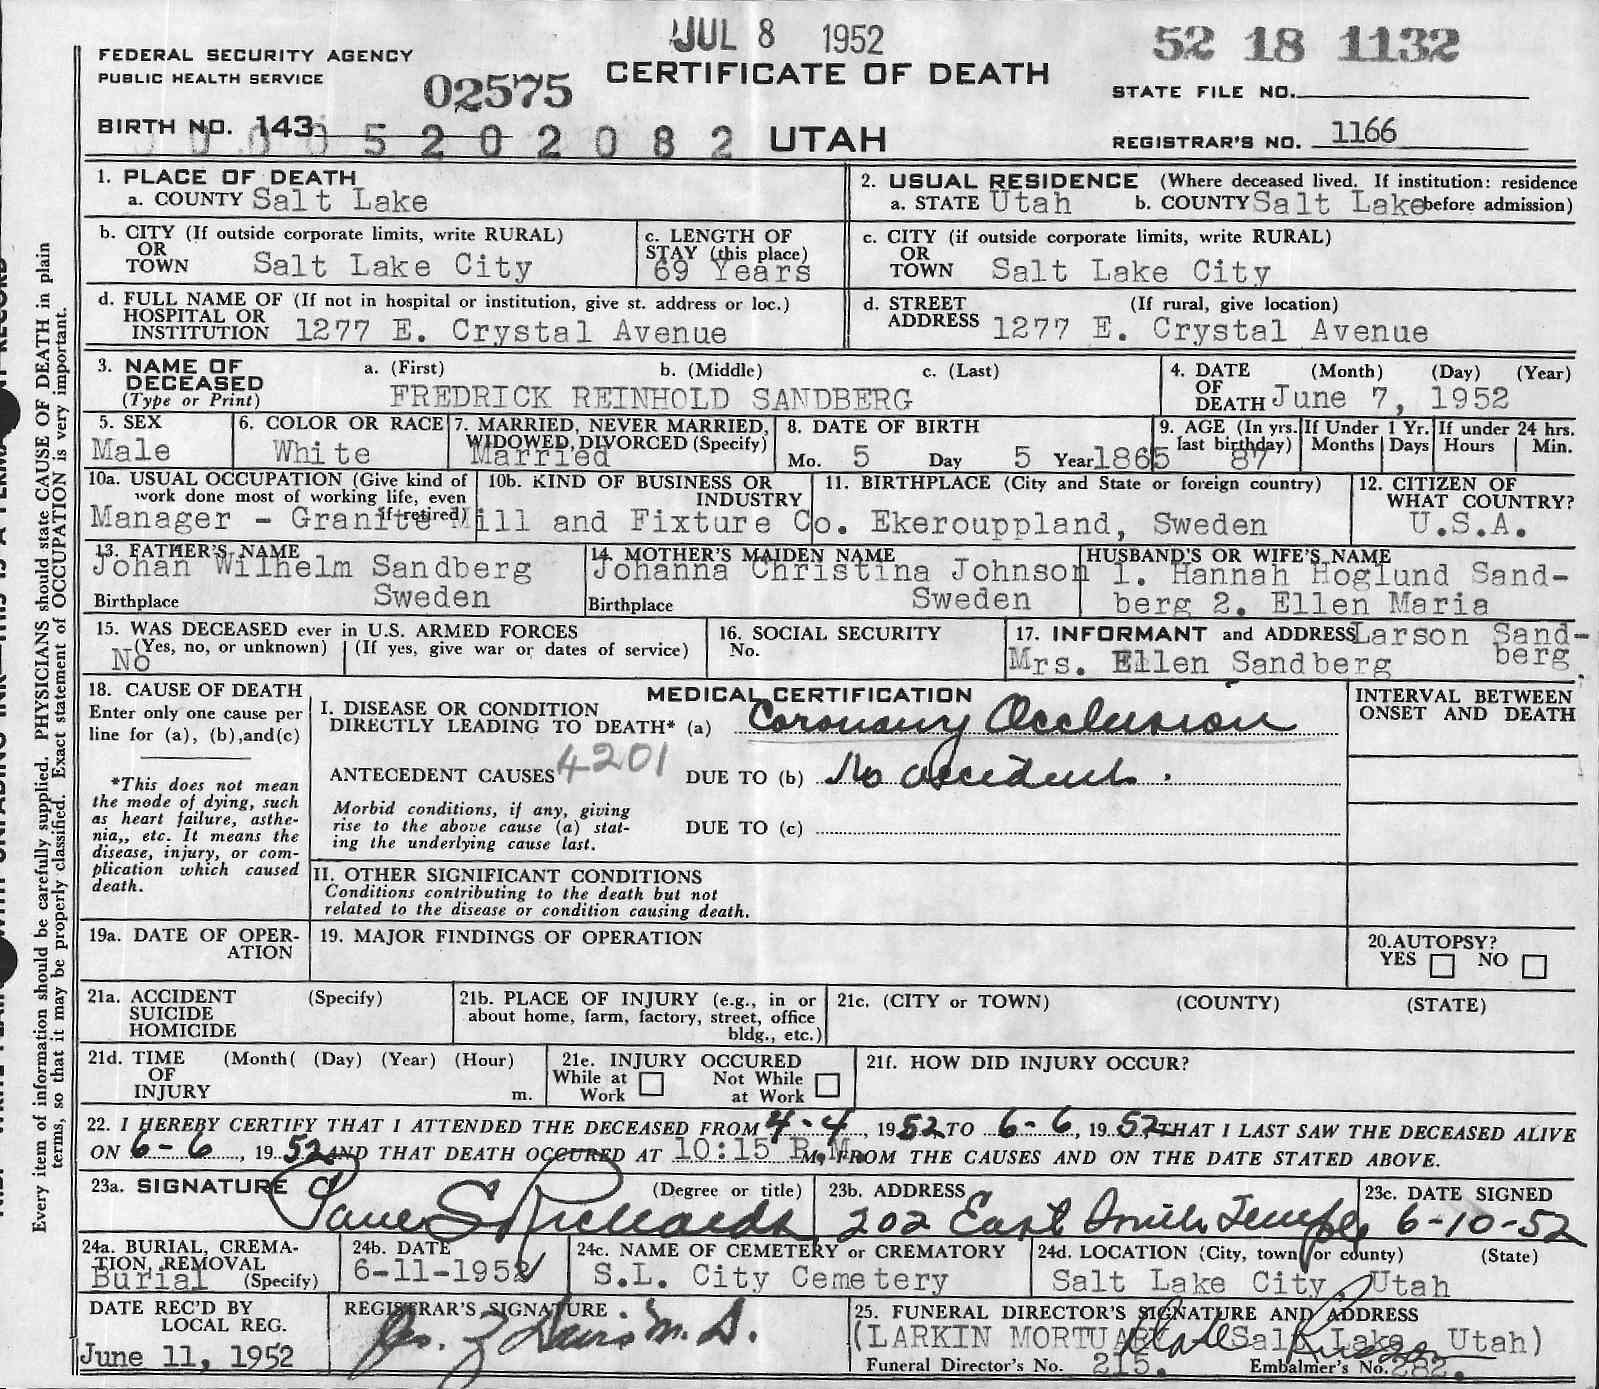 JUL 8 1952
52 18 1132
FEDERAL SECURITY AGENCY
PUBLIC HEALTH SERVICE
02575
CERTIFICATE OF DEATH
STATE FILE NO.
BIRTH NO. 143
5202082
UTAH
REGISTRAR'S NO. 1166
1. PLACE OF DEATH
a. COUNTY Salt Lake
2. USUAL RESIDENCE (Where deceased lived. If institution: residence
a. STATE Utah b. COUNTY Salt Lake before admission)
b. CITY (If outside corporate limits, write RURAL)
OR
TOWN Salt Lake City
c. LENGTH OF
STAY (this place)
69 Years
c. CITY (if outside corporate limits, write RURAL)
OR
TOWN Salt Lake City
d. FULL NAME OF (If not in hospital or institution, give st. address or loc.)
HOSPITAL OR
INSTITUTION 1277 E. Crystal Avenue
d. STREET (If rural, give location)
ADDRESS 1277 E. Crystal Avenue
3. NAME OF a. (First) b. (Middle) c. (Last)
DECEASED
(Type or Print) FREDRICK REINHOLD SANDBERG
4. DATE (Month) (Day) (Year)
OF
DEATH June 7, 1952
5. SEX
Male
6. COLOR OR RACE
White
7. MARRIED, NEVER MARRIED,
WIDOWED, DIVORCED (Specify)
Married
8. DATE OF BIRTH
Mo. 5 Day 5 Year 1865
9. AGE (In yrs.
last birthday)
87
If Under 1 Yr.
Months Days
If under 24 hrs.
Hours Min.
10a. USUAL OCCUPATION (Give kind of
work done most of working life, even
if retired)
10b. KIND OF BUSINESS OR
INDUSTRY
Manager - Granite Mill and Fixture Co.
11. BIRTHPLACE (City and State or foreign country)
Ekerouppland, Sweden
12. CITIZEN OF
WHAT COUNTRY?
U.S.A.
13. FATHER'S NAME
Johan Wilhelm Sandberg
Birthplace Sweden
14. MOTHER'S MAIDEN NAME
Johanna Christina Johnson
Birthplace Sweden
HUSBAND'S OR WIFE'S NAME
1. Hannah Hoglund Sand-
berg 2. Ellen Maria
Larson Sand-
berg.
15. WAS DECEASED ever in U.S. ARMED FORCES
(Yes, no, or unknown) (If yes, give war or dates of service)
No
16. SOCIAL SECURITY
No.
17. INFORMANT and ADDRESS
Mrs. Ellen Sandberg
18. CAUSE OF DEATH
Enter only one cause per
line for (a), (b),and(c)
*This does not mean
the mode of dying, such
as heart failure, asthe-
nia,, etc. It means the
disease, injury, or com-
plication which caused
death.
MEDICAL CERTIFICATION
I. DISEASE OR CONDITION
DIRECTLY LEADING TO DEATH* (a) Coronary Occlusion
4201
ANTECEDENT CAUSES DUE TO (b) No accident.
Morbid conditions, if any, giving
rise to the above cause (a) stat-
ing the underlying cause last.
DUE TO (c)
INTERVAL BETWEEN
ONSET AND DEATH
II. OTHER SIGNIFICANT CONDITIONS
Conditions contributing to the death but not
related to the disease or condition causing death.
19a. DATE OF OPER-
ATION
19. MAJOR FINDINGS OF OPERATION
20.AUTOPSY?
YES NO
21a. ACCIDENT (Specify)
SUICIDE
HOMICIDE
21b. PLACE OF INJURY (e.g., in or
about home, farm, factory, street, office
bldg., etc.)
21c. (CITY or TOWN) (COUNTY) (STATE)
21d. TIME (Month( (Day) (Year) (Hour)
OF
INJURY m.
21e. INJURY OCCURED
While at Not While
Work at Work
21f. HOW DID INJURY OCCUR?
22. I HEREBY CERTIFY THAT I ATTENDED THE DECEASED FROM 4-4, 1952 TO 6-6, 1952, THAT I LAST SAW THE DECEASED ALIVE
ON 6-6, 1952 AND THAT DEATH OCCURED AT 10:15 P.M. M, FROM THE CAUSES AND ON THE DATE STATED ABOVE.
23a. SIGNATURE (Degree or title)
S Richards
23b. ADDRESS
202 East South Temple
23c. DATE SIGNED
6-10-52
24a. BURIAL, CREMA-
TION, REMOVAL
Burial (Specify)
24b. DATE
6-11-1952
24c. NAME OF CEMETERY or CREMATORY
S.L. City Cemetery
24d. LOCATION (City, town or county) (State)
Salt Lake City, Utah
DATE REC'D BY
LOCAL REG.
June 11, 1952
REGISTRAR'S SIGNATURE
Davis M.D.
25. FUNERAL DIRECTOR'S SIGNATURE AND ADDRESS
(LARKIN MORTUARY Salt Lake, Utah)
Funeral Director's No. 215. Embalmer's No. 282.
Every item of information should be carefully supplied. PHYSICIANS should state CAUSE OF DEATH in plain
terms, so that it may be properly classified. Exact statement of OCCUPATION is very important.